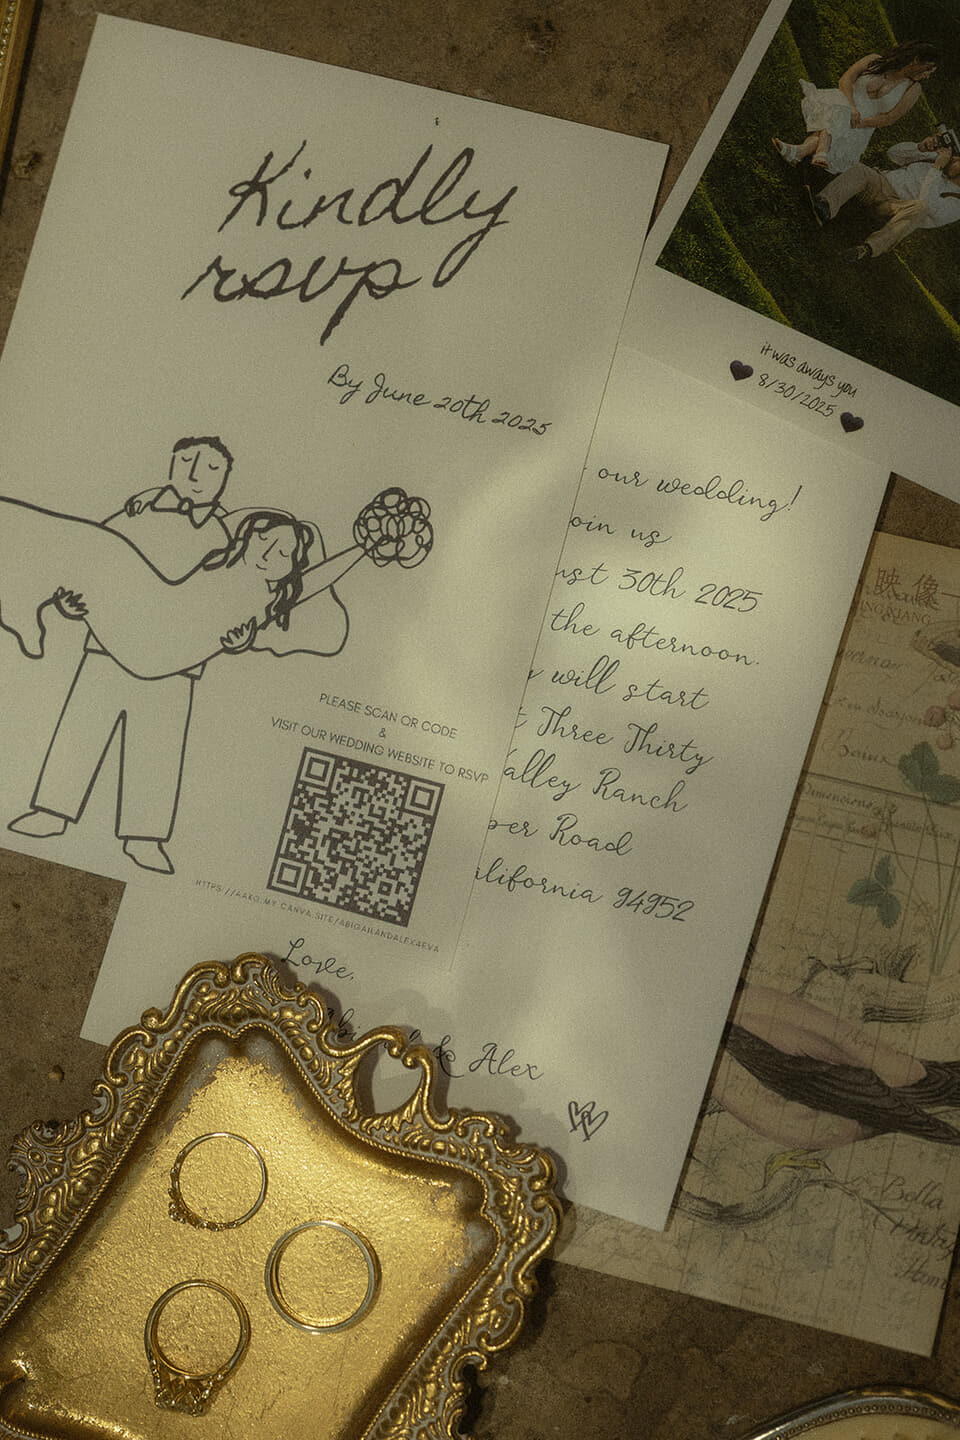 Kindly
rsvp
By June 20th 2025
PLEASE SCAN OR CODE
&
VISIT OUR WEDDING WEBSITE TO RSVP
HTTPS://AAKO.MY.CANVA.SITE/ABIGAILANDALEX4EVA
it was aways you
8/30/2025
our wedding!
oin us
ust 30th 2025
the afternoon.
will start
t Three Thirty
alley Ranch
per Road
alifornia 94952
Love,
& Alex
映像
Baux
Dimenciones
Bella